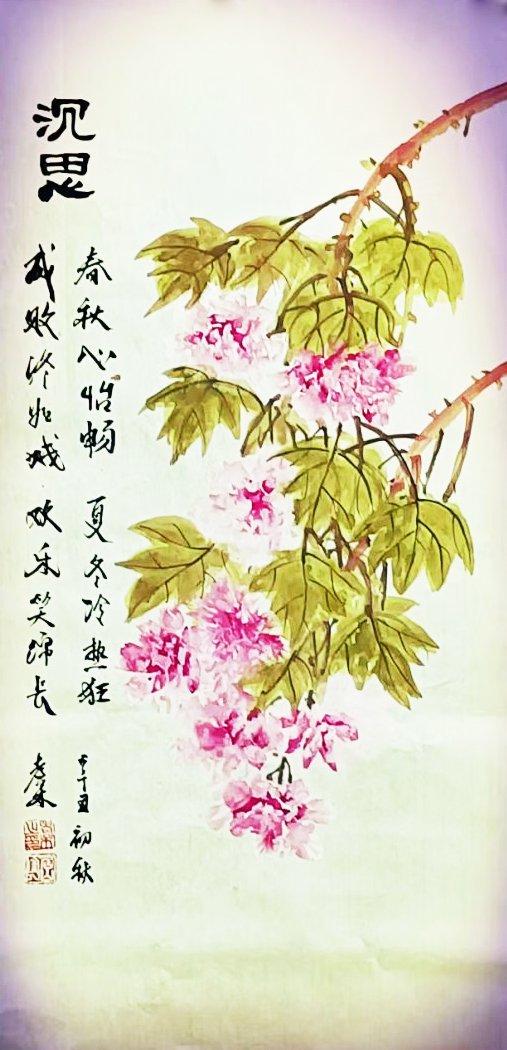 沉思
春秋心怡畅 夏冬冷热狂
成败终如 欢乐笑绵长
辛丑初秋